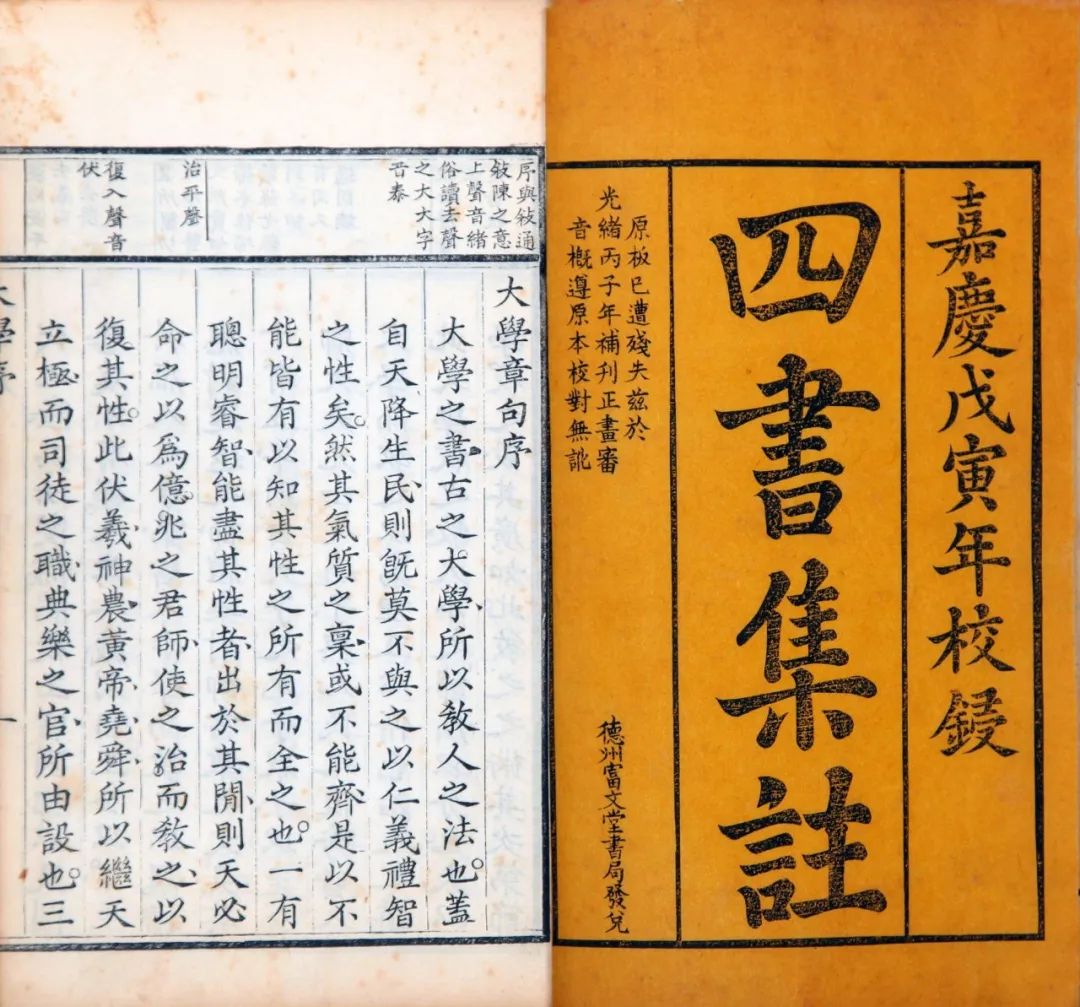 嘉慶戊寅年校鋟
四書集註
原板已遭殘失茲於
光緒丙子年補刋正畫審
音概遵原本校對無訛
德州富文堂書局發兌
序與敘通
敘陳之意
上聲音緒
俗讀去聲
之大大字
音泰
治平聲
復入聲音
伏
大學章句序
大學之書古之大學所以教人之法也蓋
自天降生民則既莫不與之以仁義禮智
之性矣然其氣質之稟或不能齊是以不
能皆有以知其性之所有而全之也一有
聰明睿智能盡其性者出於其閒則天必
命之以爲億兆之君師使之治而教之以
復其性此伏羲神農黃帝堯舜所以繼天
立極而司徒之職典樂之官所由設也三
大學序
一